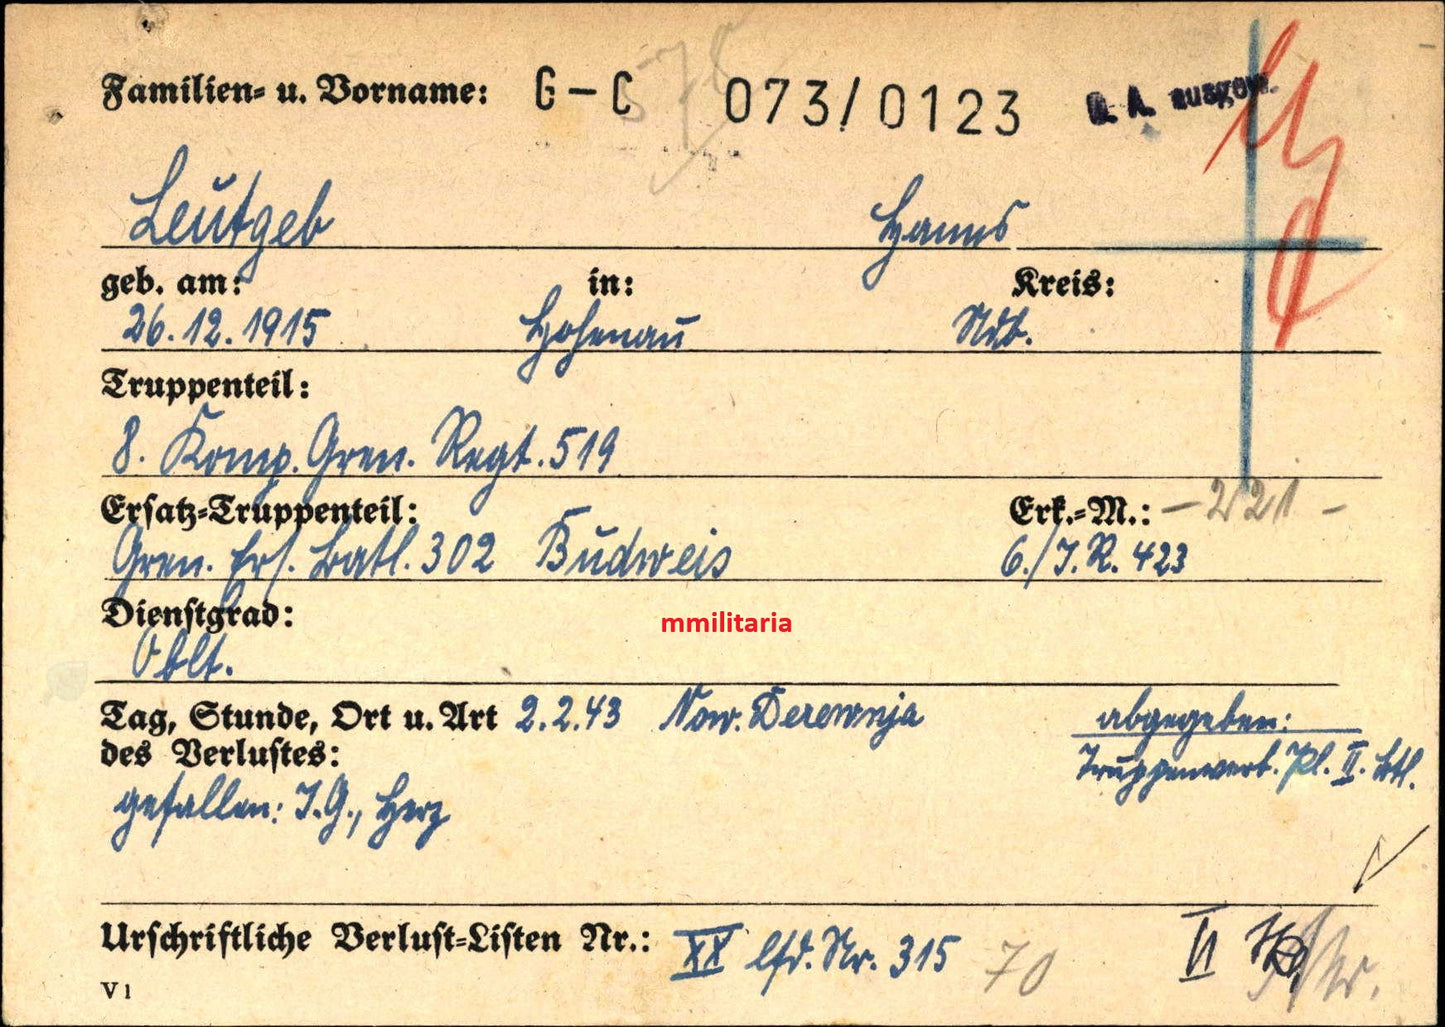 Familien- u. Vorname: G-C 073/0123
Leutgeb Hanns
geb. am: in: Kreis:
26.12.1915 Hohenau Ndb.
Truppenteil:
8. Komp. Gren. Regt. 519
Ersatz-Truppenteil: Erk.-M.: -221-
Gren. Ers. Batl. 302 Budweis 6./J.R. 423
Dienstgrad:
mmilitaria
Oblt.
Tag, Stunde, Ort u. Art 2.2.43 Now. Derewnja abgegeben:
des Verlustes: II. Btl.
gefallen: J.G., Herz
Urschriftliche Verlust-Listen Nr.: XX lfd. Nr. 315 70 II
V 1